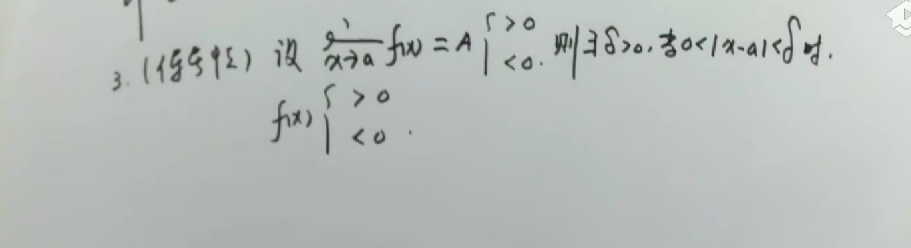 3. (保号性) 设 lim_{x→a} f(x) = A { > 0 < 0. 则 ∃ δ > 0. 当 0 < |x - a| < δ 时.
f(x) { > 0 < 0.